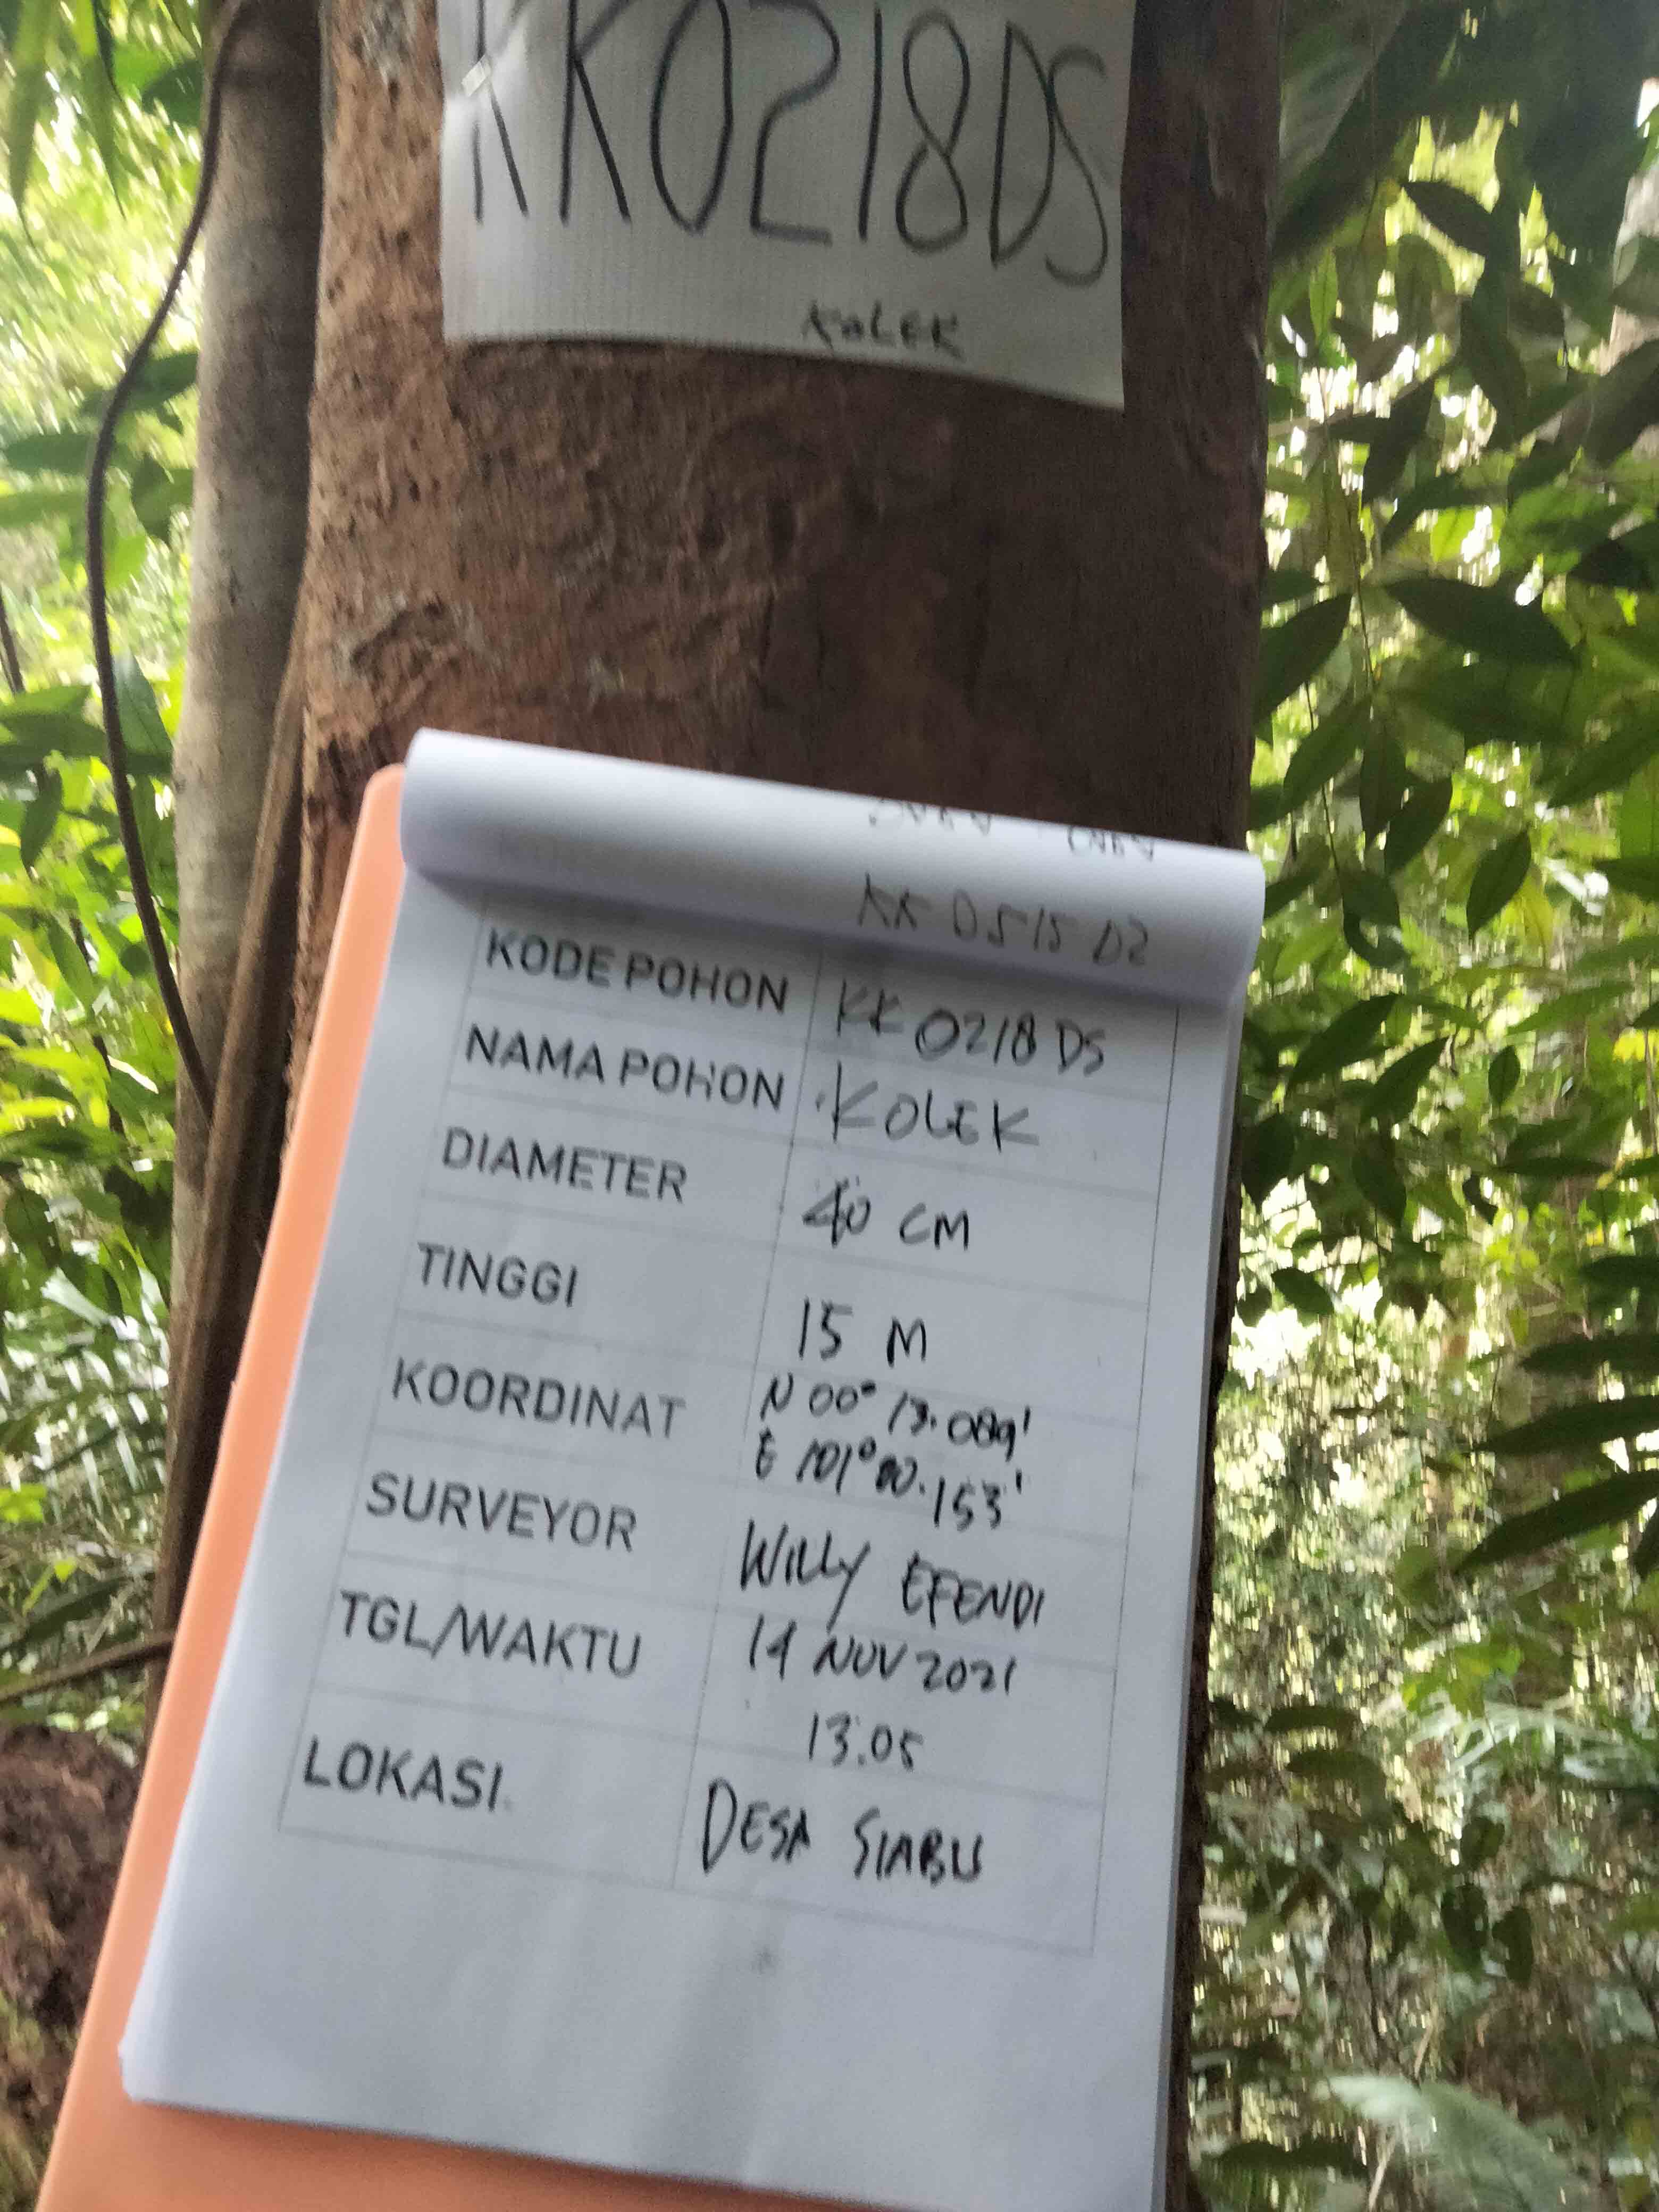 KK0218DS
KOLEK
KODE POHON KK 0218 DS
NAMA POHON KOLEK
DIAMETER 40 CM
TINGGI 15 M
KOORDINAT N 00°
E 101° 153'
SURVEYOR WILLY EFENDI
TGL/WAKTU 14 NOV 2021
13.05
LOKASI DESA SIABU